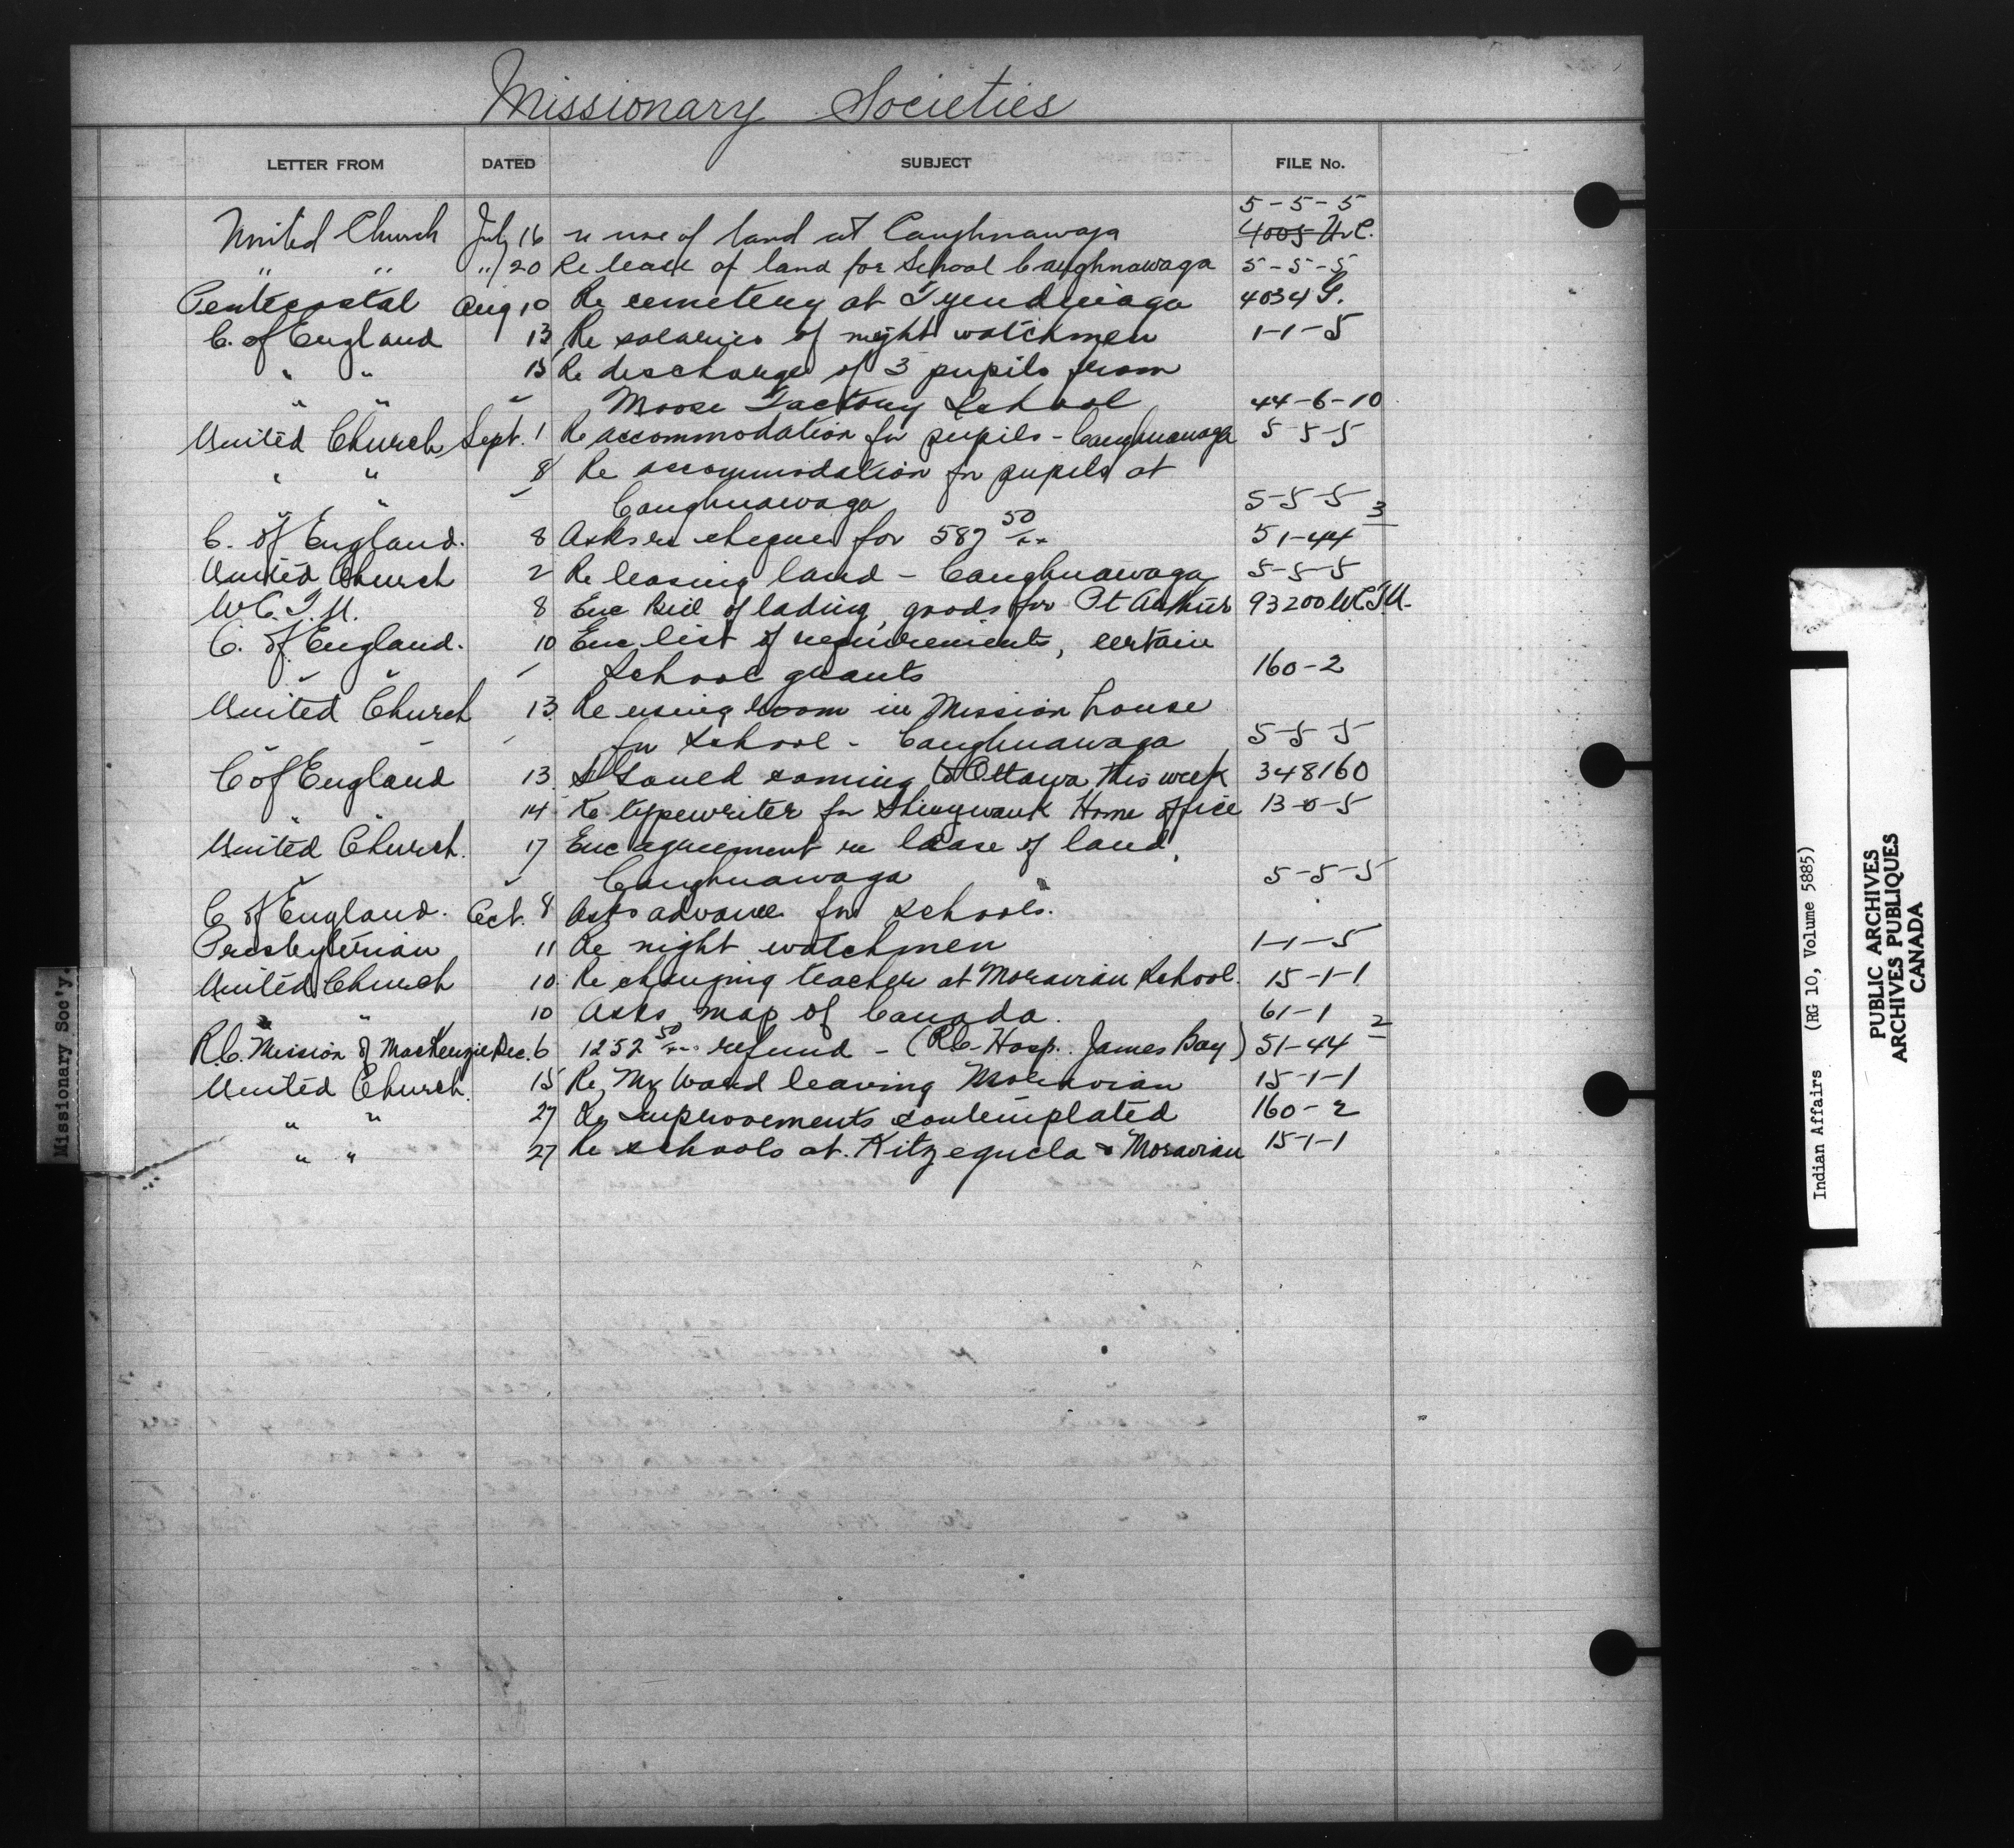 Missionary Societies
LETTER FROM DATED SUBJECT FILE No.
5-5-5
United Church July 16 re use of land at Caughnawaga 4005 U.C.
" " " 20 Re lease of land for School Caughnawaga 5-5-5
Pentecostal Aug 10 Re cemetery at Tyendinaga 4034 G.
C. of England 13 Re salaries of night watchmen 1-1-5
" " 13 Re discharge of 3 pupils from
" " " Moose Factory School 44-6-10
United Church Sept. 1 Re accommodation for pupils - Caughnawaga 5-5-5
" " 8 Re accommodation for pupils at
" " " Caughnawaga 5-5-5
C. of England. 8 Asks re cheque for 587 50/xx 51-44 3
United Church 2 Re leasing land - Caughnawaga 5-5-5
W.C.T.U. 8 Enc Bill of lading, goods for Pt Arthur 93200 W.C.T.U.
C. of England. 10 Enc list of requirements, certain
" " " School grants 160-2
United Church 13. Re using room in Mission house
" " " for School - Caughnawaga 5-5-5
C of England 13. coming to Ottawa this week 348160
" " 14 Re typewriter for Shingwauk Home office 13-0-5
United Church. 17 Enc agreement re lease of land,
" " Caughnawaga 5-5-5
C of England. Oct. 8 Asks advance for schools.
Presbyterian 11 Re night watchmen 1-1-5
United Church 10. Re changing teacher at Moravian School. 15-1-1
" " 10 Asks map of Canada. 61-1
R.C. Mission of MacKenzie Dec. 6 1252 50/xx refund - (R.C. Hosp. James Bay) 51-44 2
United Church. 15 Re Mr Ward leaving Moravian 15-1-1
" " 27 Re Improvements contemplated 160-2
" " 27 Re schools at Kitzegucla & Moravian 15-1-1
Missionary Soc'y.
Indian Affairs (RG 10, Volume 5885)
PUBLIC ARCHIVES
ARCHIVES PUBLIQUES
CANADA